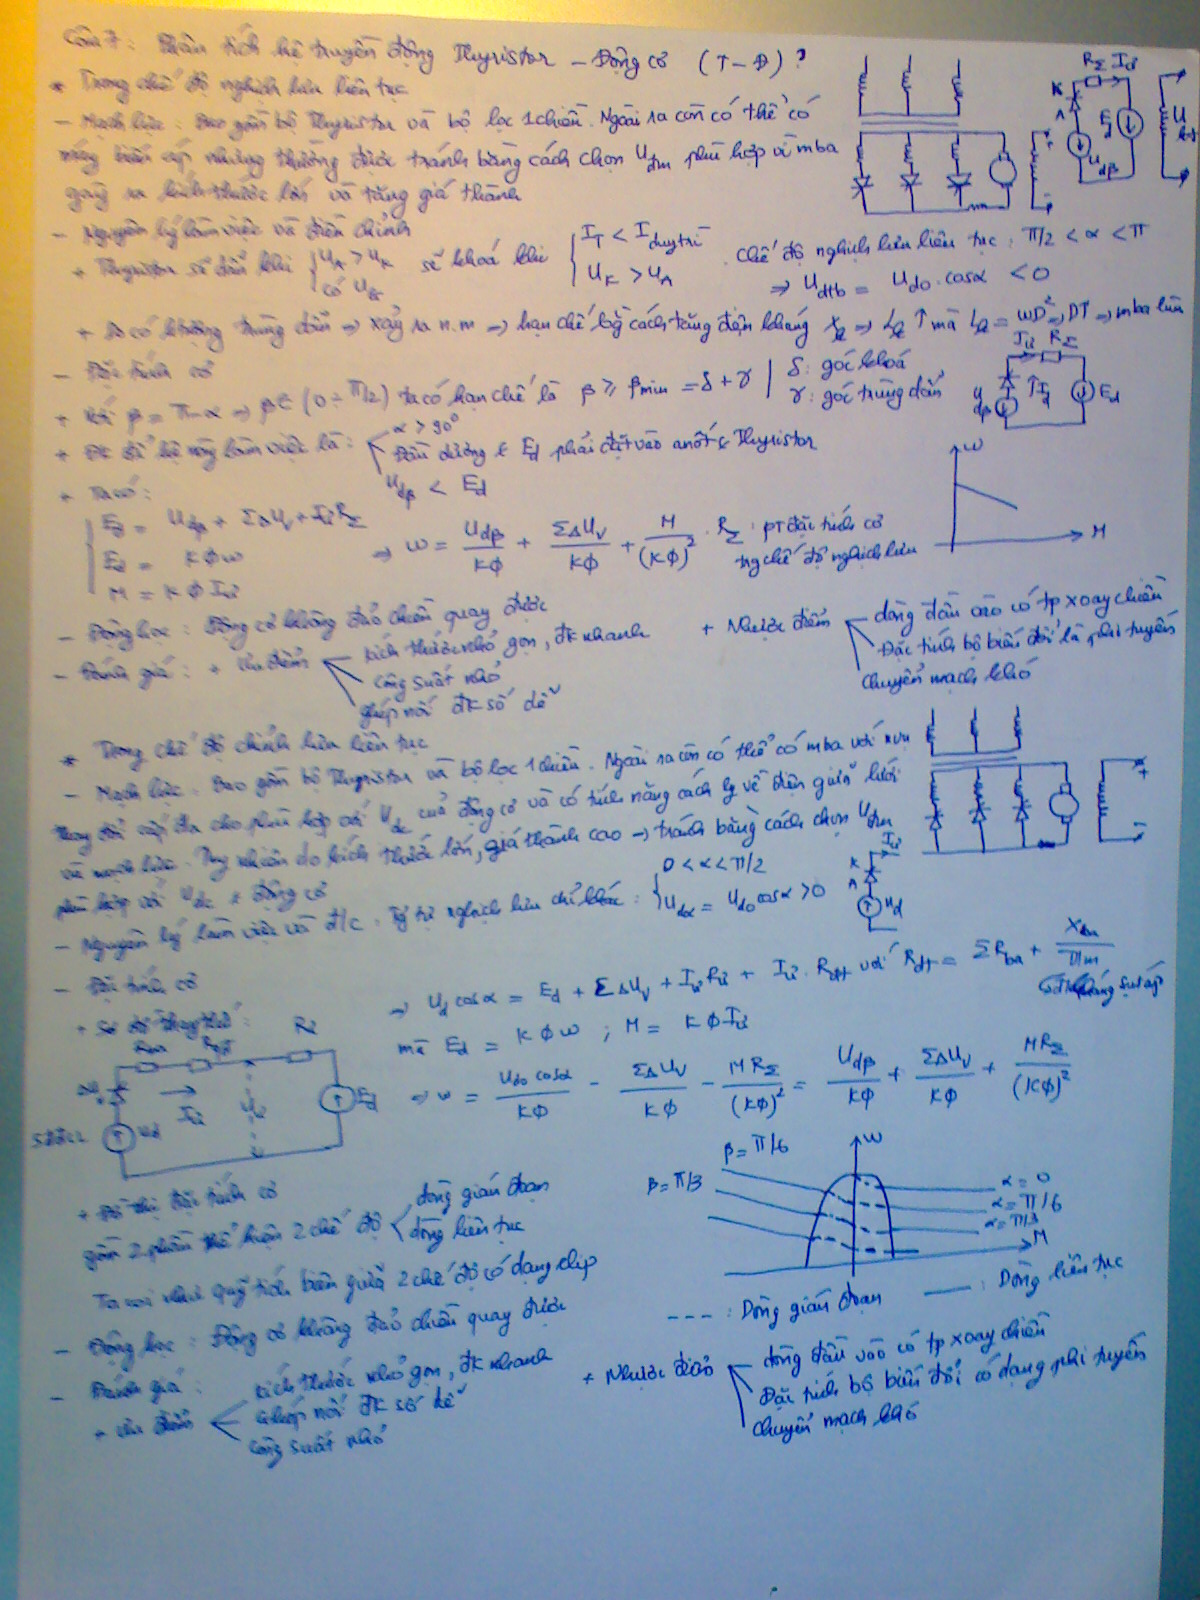 Câu 7: Phân tích hệ truyền động Thyristor – Động cơ (T – Đ)?
* Trong chế độ nghịch lưu liên tục
– Mạch lực: Bao gồm bộ Thyristor và bộ lọc 1 chiều. Ngoài ra còn có thể có
máy biến áp nhưng thường được tránh bằng cách chọn Uđm phù hợp vì mba
gây ra kích thước lớn và tăng giá thành
– Nguyên lý làm việc và điều chỉnh
+ Thyristor sẽ dẫn khi { UA > UK, có UG sẽ khoá khi { IT < Iduytrì, UK > UA . Chế độ nghịch lưu liên tục: π/2 < α < π
⇒ Udtb = Ud0 . cosα < 0
+ Do có trùng dẫn ⇒ xảy ra n.m ⇒ hạn chế bằng cách tăng điện kháng
– Đặc tính cơ
+ Với β = π – α ⇒ β ∈ (0 ÷ π/2) ta có hạn chế là β ≥ βmin = δ + γ | δ: góc khoá
γ: góc trùng dẫn
+ Để hệ làm việc là: α > 90°
Đầu dương Ed phải đặt vào anốt Thyristor
Udβ < Ed
+ Ta có:
Ed = Udβ + ΣΔUv + Iư RΣ
Ed = KΦω
M = KΦIư
⇒ ω = Udβ/KΦ + ΣΔUv/KΦ + M/(KΦ)² . RΣ : pt đặc tính cơ
trg chế độ nghịch lưu
– Động học: Động cơ không đảo chiều quay được
– Đánh giá: + Ưu điểm kích thước nhỏ gọn, đk nhanh
công suất nhỏ
ghép nối đk số dễ
+ Nhược điểm dòng đầu vào có tp xoay chiều
Đặc tính bộ biến đổi là phi tuyến
Chuyển mạch khó
* Trong chế độ chỉnh lưu liên tục
– Mạch lực: Bao gồm bộ Thyristor và bộ lọc 1 chiều. Ngoài ra còn có thể có mba với
thay đổi cấp đ/a cho phù hợp với Uđc của động cơ và có tính năng cách ly về điện giữa lưới
và mạch lực. Tuy nhiên do kích thước lớn, giá thành cao → tránh bằng cách chọn Uđm
phù hợp với Uđc động cơ
– Nguyên lý làm việc và đ/c. Tg tự nghịch lưu chỉ khác: { 0 < α < π/2
Udα = Ud0 cosα > 0
– Đặc tính cơ
+ Sơ đồ thay thế:
⇒ Ud cosα = Ed + ΣΔUv + Iư Rư + Iư . Rđt với Rđt = ΣRba +
mà Ed = KΦω ; M = KΦIư
⇒ ω = Ud0 cosα/KΦ – ΣΔUv/KΦ – MRΣ/(KΦ)² = Udβ/KΦ + ΣΔUv/KΦ + MRΣ/(KΦ)²
+ Đồ thị đặc tính cơ
gồm 2 phần thể hiện 2 chế độ dòng gián đoạn
dòng liên tục
Ta coi như quỹ tích biên giữa 2 chế độ có dạng elip
β = π/6
β = π/3
ω
α = 0
α = π/6
α = π/3
M
- - - : Dòng gián đoạn
—— : Dòng liên tục
– Động học: Động cơ không đảo chiều quay được
– Đánh giá:
+ Ưu điểm kích thước nhỏ gọn, đk nhanh
Ghép nối đk số dễ
công suất nhỏ
+ Nhược điểm dòng đầu vào có tp xoay chiều
Đặc tính bộ biến đổi có dạng phi tuyến
Chuyển mạch khó